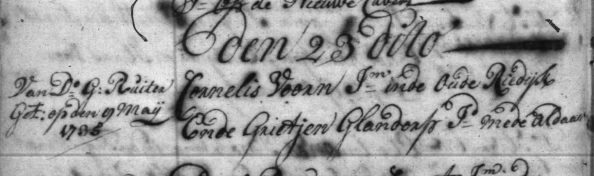 de Nieuwe haven
den 23 dito
Van Ds. G: Ruiter
Get: op den 9 Maÿ
1735
Cornelis Voorn J.m inde Oude Riedijk
Ende Grietjen Glandorff J.d mede aldaar